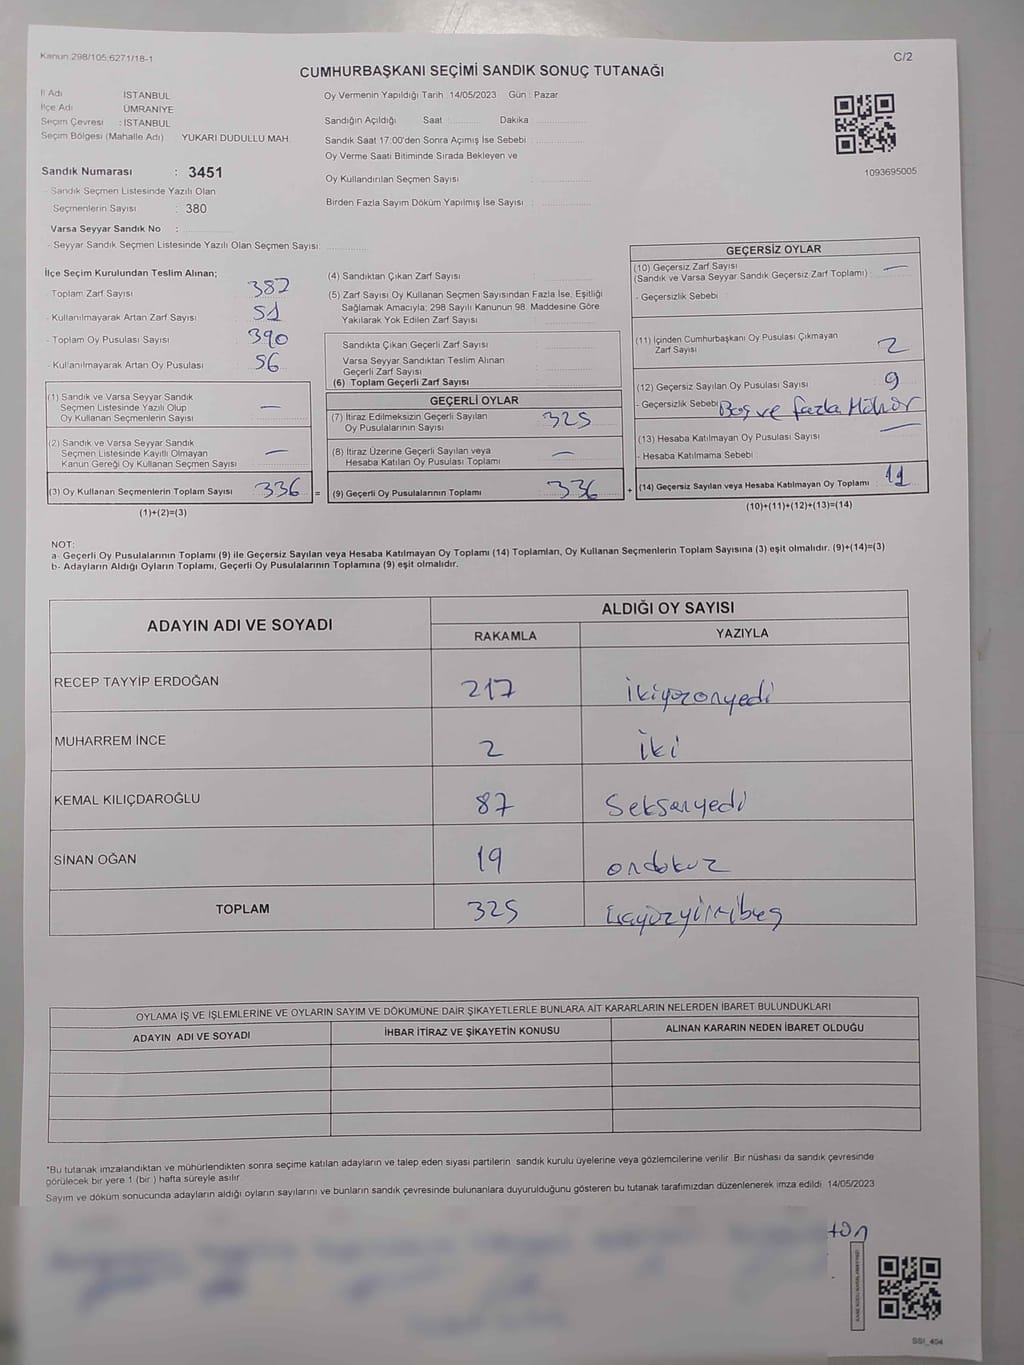 Kanun:298/105;6271/18-1
C/2
CUMHURBAŞKANI SEÇİMİ SANDIK SONUÇ TUTANAĞI
İl Adı İSTANBUL
İlçe Adı ÜMRANİYE
Seçim Çevresi : İSTANBUL
Seçim Bölgesi (Mahalle Adı) YUKARI DUDULLU MAH.
Oy Vermenin Yapıldığı Tarih :14/05/2023 Gün : Pazar
Sandığın Açıldığı Saat : Dakika
Sandık Saat 17:00'den Sonra Açımış İse Sebebi
Oy Verme Saati Bitiminde Sırada Bekleyen ve
Oy Kullandırılan Seçmen Sayısı :
Birden Fazla Sayım Döküm Yapılmış İse Sayısı :
1093695005
Sandık Numarası : 3451
- Sandık Seçmen Listesinde Yazılı Olan
Seçmenlerin Sayısı : 380
Varsa Seyyar Sandık No :
- Seyyar Sandık Seçmen Listesinde Yazılı Olan Seçmen Sayısı:
İlçe Seçim Kurulundan Teslim Alınan;
- Toplam Zarf Sayısı 387
- Kullanılmayarak Artan Zarf Sayısı 51
- Toplam Oy Pusulası Sayısı 390
- Kullanılmayarak Artan Oy Pusulası 56
(1) Sandık ve Varsa Seyyar Sandık
Seçmen Listesinde Yazılı Olup
Oy Kullanan Seçmenlerin Sayısı —
(2) Sandık ve Varsa Seyyar Sandık
Seçmen Listesinde Kayıtlı Olmayan
Kanun Gereği Oy Kullanan Seçmen Sayısı —
(3) Oy Kullanan Seçmenlerin Toplam Sayısı 336 =
(1)+(2)=(3)
(4) Sandıktan Çıkan Zarf Sayısı :
(5) Zarf Sayısı Oy Kullanan Seçmen Sayısından Fazla İse, Eşitliği
Sağlamak Amacıyla; 298 Sayılı Kanunun 98. Maddesine Göre
Yakılarak Yok Edilen Zarf Sayısı
Sandıkta Çıkan Geçerli Zarf Sayısı :
Varsa Seyyar Sandıktan Teslim Alınan
Geçerli Zarf Sayısı
(6) Toplam Geçerli Zarf Sayısı
GEÇERLİ OYLAR
(7) İtiraz Edilmeksizin Geçerli Sayılan
Oy Pusulalarının Sayısı 325
(8) İtiraz Üzerine Geçerli Sayılan veya
Hesaba Katılan Oy Pusulası Toplamı —
(9) Geçerli Oy Pusulalarının Toplamı 336 +
GEÇERSİZ OYLAR
(10) Geçersiz Zarf Sayısı
(Sandık ve Varsa Seyyar Sandık Geçersiz Zarf Toplamı) —
- Geçersizlik Sebebi
(11) İçinden Cumhurbaşkanı Oy Pusulası Çıkmayan
Zarf Sayısı 2
(12) Geçersiz Sayılan Oy Pusulası Sayısı 9
- Geçersizlik Sebebi Boş ve fazla Mühür
(13) Hesaba Katılmayan Oy Pusulası Sayısı —
- Hesaba Katılmama Sebebi
(14) Geçersiz Sayılan veya Hesaba Katılmayan Oy Toplamı : 11
(10)+(11)+(12)+(13)=(14)
NOT:
a- Geçerli Oy Pusulalarının Toplamı (9) ile Geçersiz Sayılan veya Hesaba Katılmayan Oy Toplamı (14) Toplamları, Oy Kullanan Seçmenlerin Toplam Sayısına (3) eşit olmalıdır. (9)+(14)=(3)
b- Adayların Aldığı Oyların Toplamı, Geçerli Oy Pusulalarının Toplamına (9) eşit olmalıdır.
ADAYIN ADI VE SOYADI
ALDIĞI OY SAYISI
RAKAMLA YAZIYLA
RECEP TAYYİP ERDOĞAN 217 ikiyüzonyedi
MUHARREM İNCE 2 iki
KEMAL KILIÇDAROĞLU 87 Seksenyedi
SİNAN OĞAN 19 ondokuz
TOPLAM 325 üçyüzyirmibeş
OYLAMA İŞ VE İŞLEMLERİNE VE OYLARIN SAYIM VE DÖKÜMÜNE DAİR ŞİKAYETLERLE BUNLARA AİT KARARLARIN NELERDEN İBARET BULUNDUKLARI
ADAYIN ADI VE SOYADI İHBAR İTİRAZ VE ŞİKAYETİN KONUSU ALINAN KARARIN NEDEN İBARET OLDUĞU
*Bu tutanak imzalandıktan ve mühürlendikten sonra seçime katılan adayların ve talep eden siyasi partilerin sandık kurulu üyelerine veya gözlemcilerine verilir. Bir nüshası da sandık çevresinde
görülecek bir yere 1 (bir ) hafta süreyle asılır.
Sayım ve döküm sonucunda adayların aldığı oyların sayılarını ve bunların sandık çevresinde bulunanlara duyurulduğunu gösteren bu tutanak tarafımızdan düzenlenerek imza edildi. 14/05/2023
SSI_404